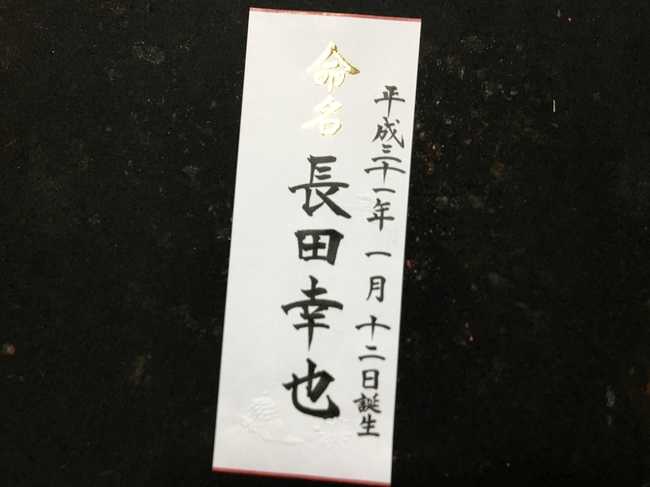 平成三十一年 一月 十二日誕生
命名
長田幸也